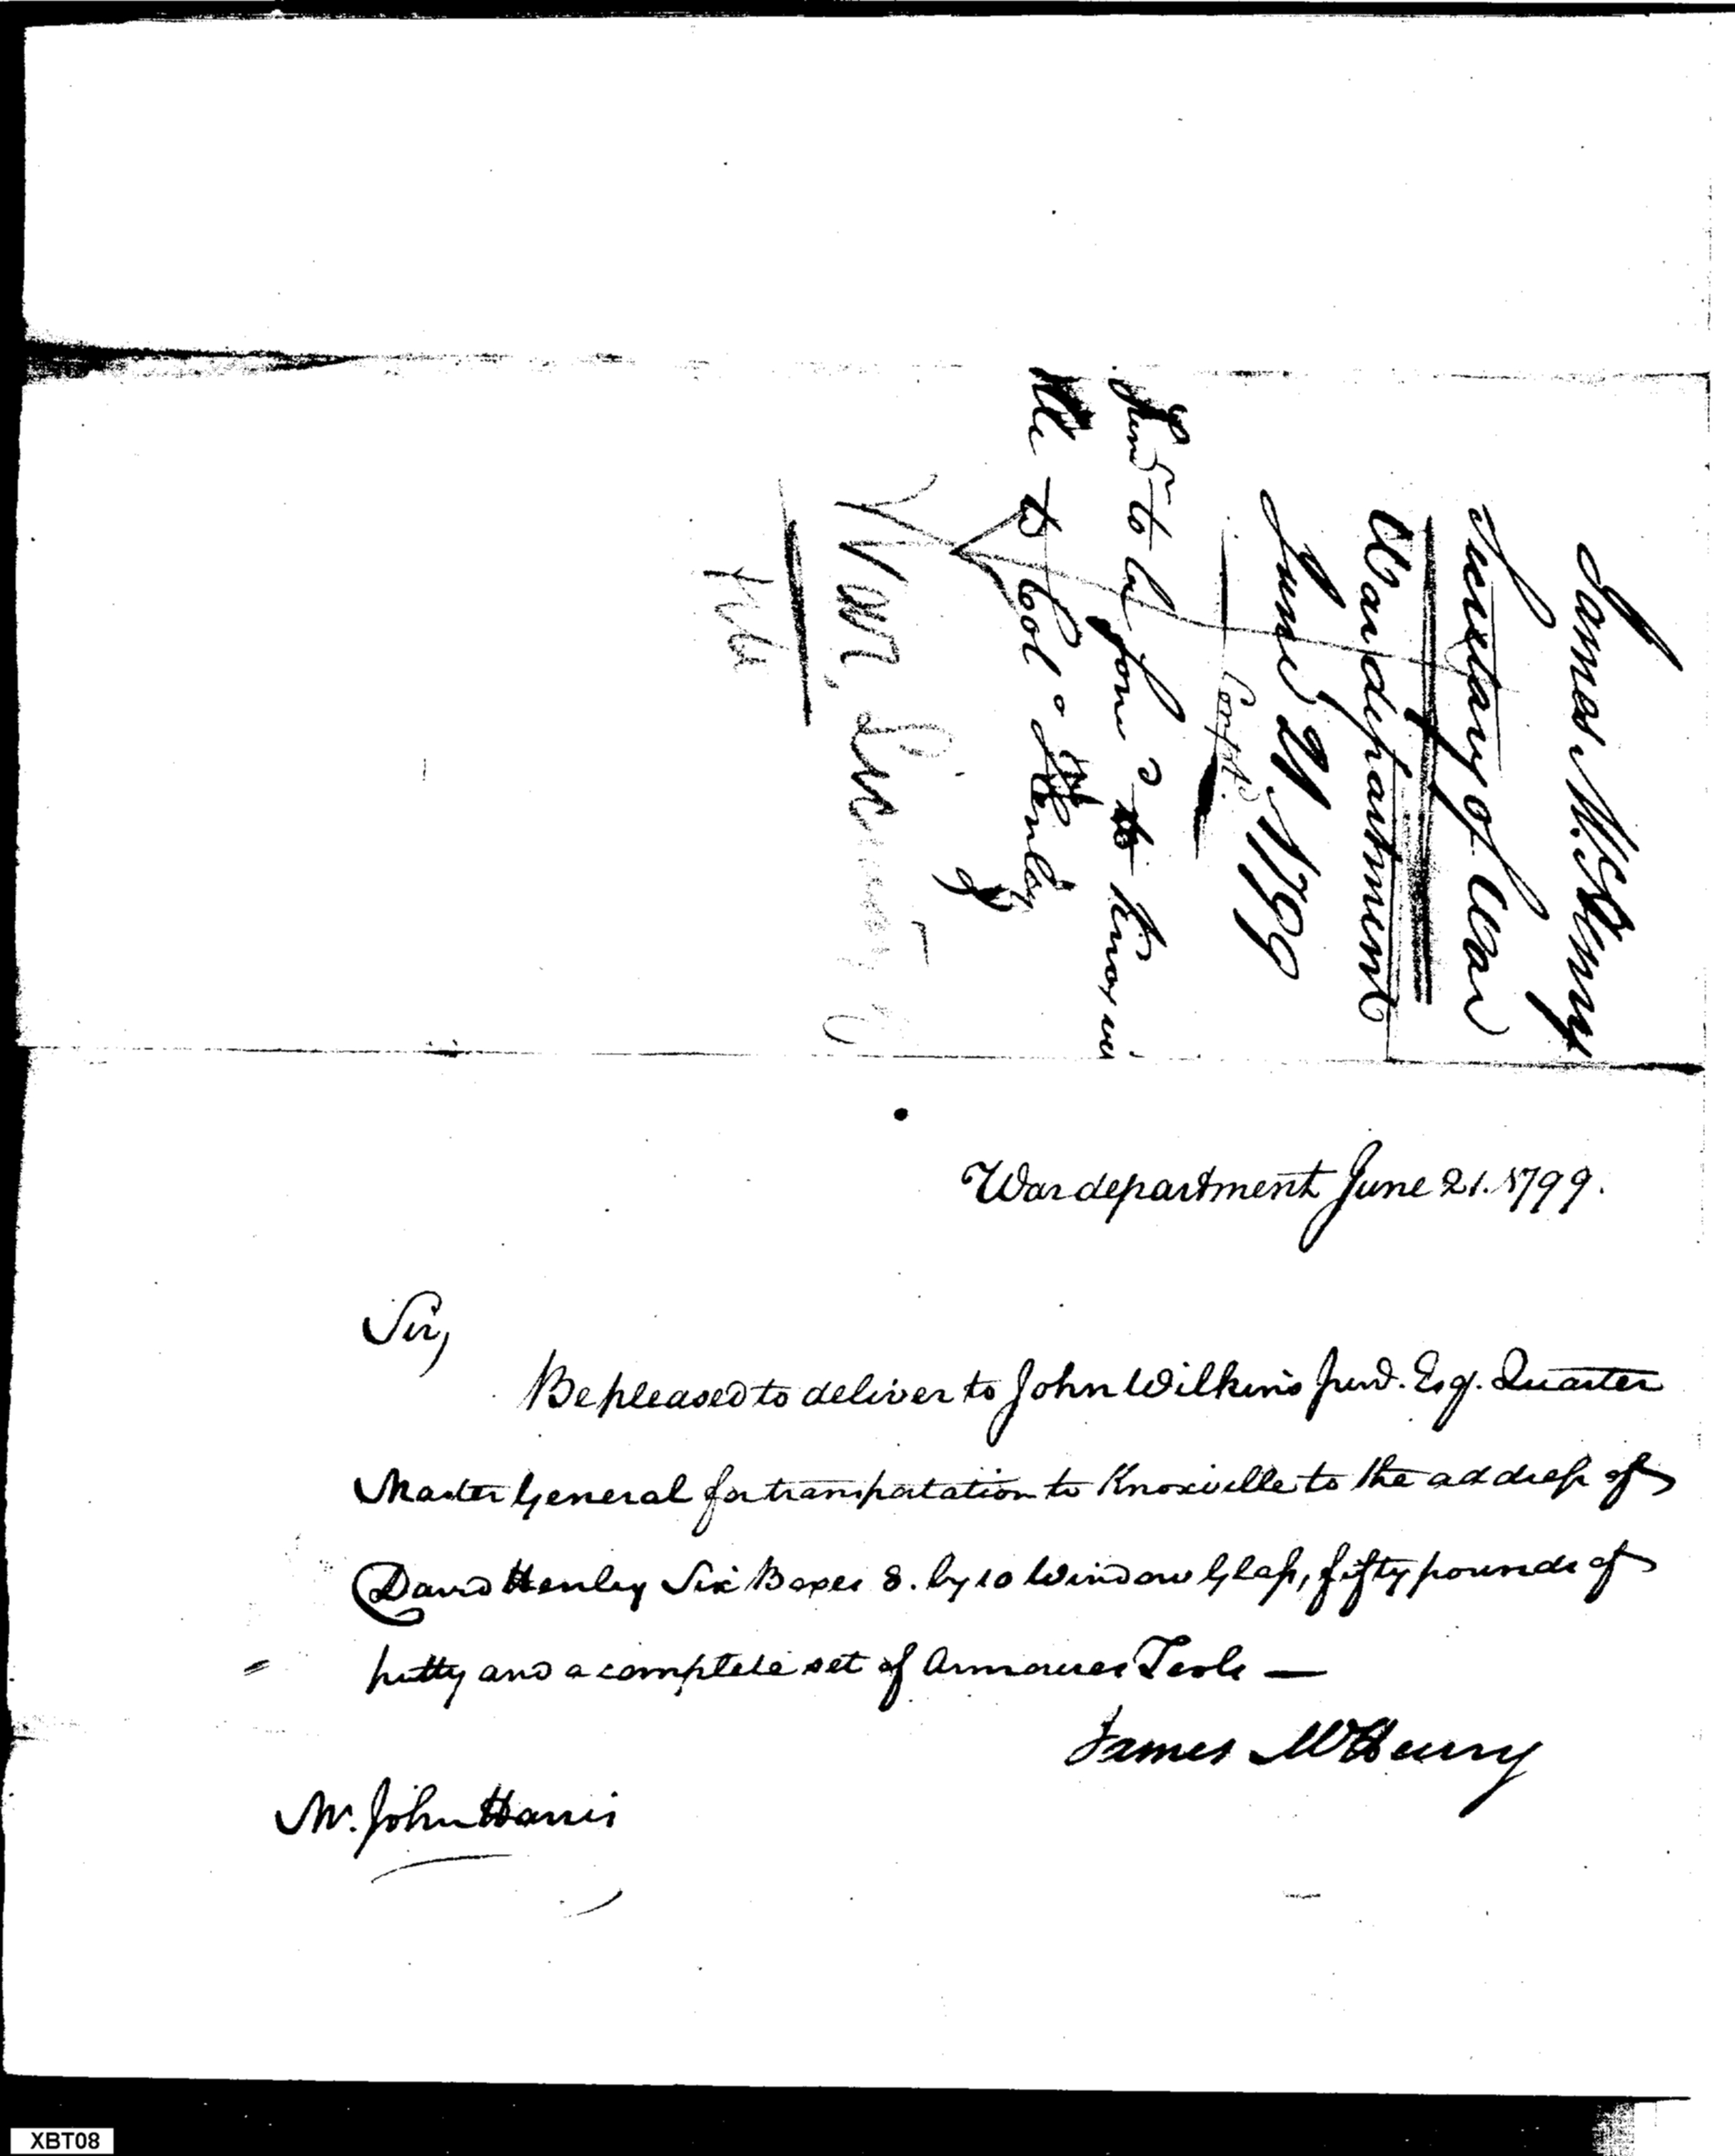 James McHenry
Secretary of War
War department
June 21 1799
to be for to Knoxvi
lle to Col o Henley
War.
War department June 21. 1799.
Sir,
Be pleased to deliver to John Wilkins Junr. Esq. Quarter
Master General for transportation to Knoxville to the address of
David Henley Six Boxes 8. by 10 Window Glass, fifty pounds of
putty and a complete set of Armourer Tools —
James McHenry
Mr. John Harris
XBT08